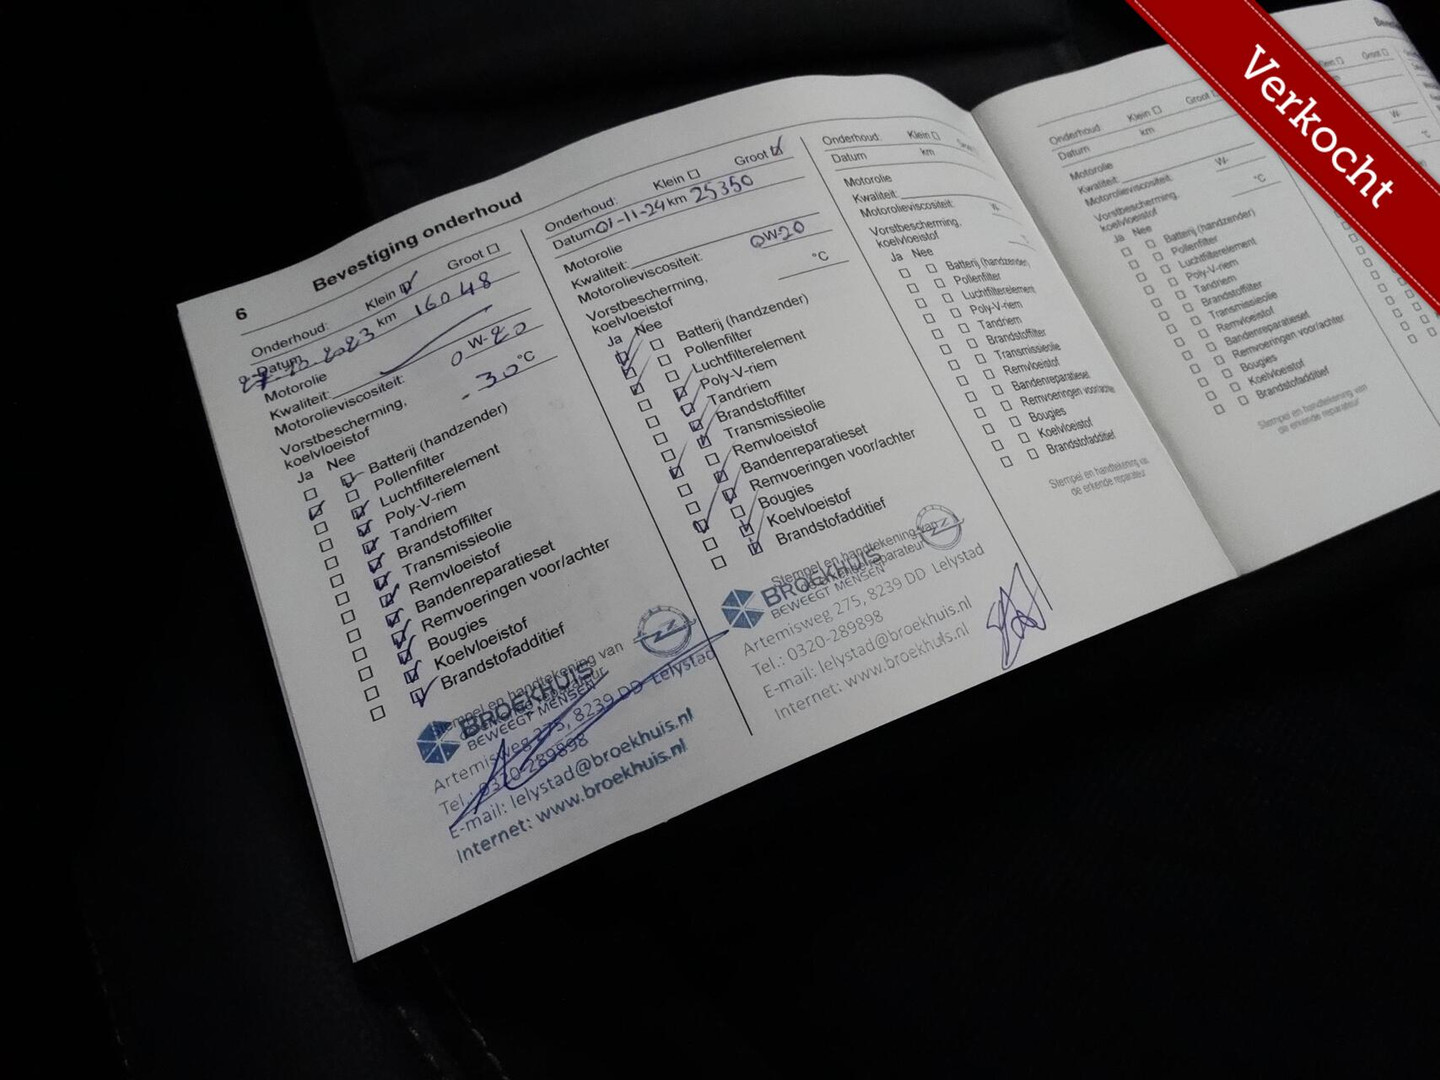 Verkocht
6
Bevestiging onderhoud
Onderhoud: Klein Groot
Datum 2023 km 16048
Motorolie
Kwaliteit:
Motorolieviscositeit: 0 W-20
Vorstbescherming,
koelvloeistof -30 °C
Ja Nee
Batterij (handzender)
Pollenfilter
Luchtfilterelement
Poly-V-riem
Tandriem
Brandstoffilter
Transmissieolie
Remvloeistof
Bandenreparatieset
Remvoeringen voor/achter
Bougies
Koelvloeistof
Brandstofadditief
Stempel en handtekening van
BROEKHUIS
BEWEEGT MENSEN
Artemisweg 275, 8239 DD Lelystad
Tel.: 0320-289898
E-mail: lelystad@broekhuis.nl
Internet: www.broekhuis.nl
Onderhoud: Klein Groot
Datum 01-11-24 km 25350
Motorolie
Kwaliteit:
Motorolieviscositeit: 0W-20
Vorstbescherming,
koelvloeistof °C
Ja Nee
Batterij (handzender)
Pollenfilter
Luchtfilterelement
Poly-V-riem
Tandriem
Brandstoffilter
Transmissieolie
Remvloeistof
Bandenreparatieset
Remvoeringen voor/achter
Bougies
Koelvloeistof
Brandstofadditief
Stempel en handtekening van
reparateur
BROEKHUIS
BEWEEGT MENSEN
Artemisweg 275, 8239 DD Lelystad
Tel.: 0320-289898
E-mail: lelystad@broekhuis.nl
Internet: www.broekhuis.nl
Onderhoud: Klein
Datum km
Motorolie
Kwaliteit:
Motorolieviscositeit: W-
Vorstbescherming,
koelvloeistof
Ja Nee
Batterij (handzender)
Pollenfilter
Luchtfilterelement
Poly-V-riem
Tandriem
Brandstoffilter
Transmissieolie
Remvloeistof
Bandenreparatieset
Remvoeringen voor/achter
Bougies
Koelvloeistof
Brandstofadditief
Stempel en handtekening van
de erkende reparateur
Onderhoud: Klein Groot
Datum km
Motorolie
Kwaliteit: W-
Motorolieviscositeit:
Vorstbescherming, °C
koelvloeistof
Ja Nee
Batterij (handzender)
Pollenfilter
Luchtfilterelement
Poly-V-riem
Tandriem
Brandstoffilter
Transmissieolie
Remvloeistof
Bandenreparatieset
Remvoeringen voor/achter
Bougies
Koelvloeistof
Brandstofadditief
Stempel en handtekening van
de erkende reparateur
Klein Groot
W-
°C